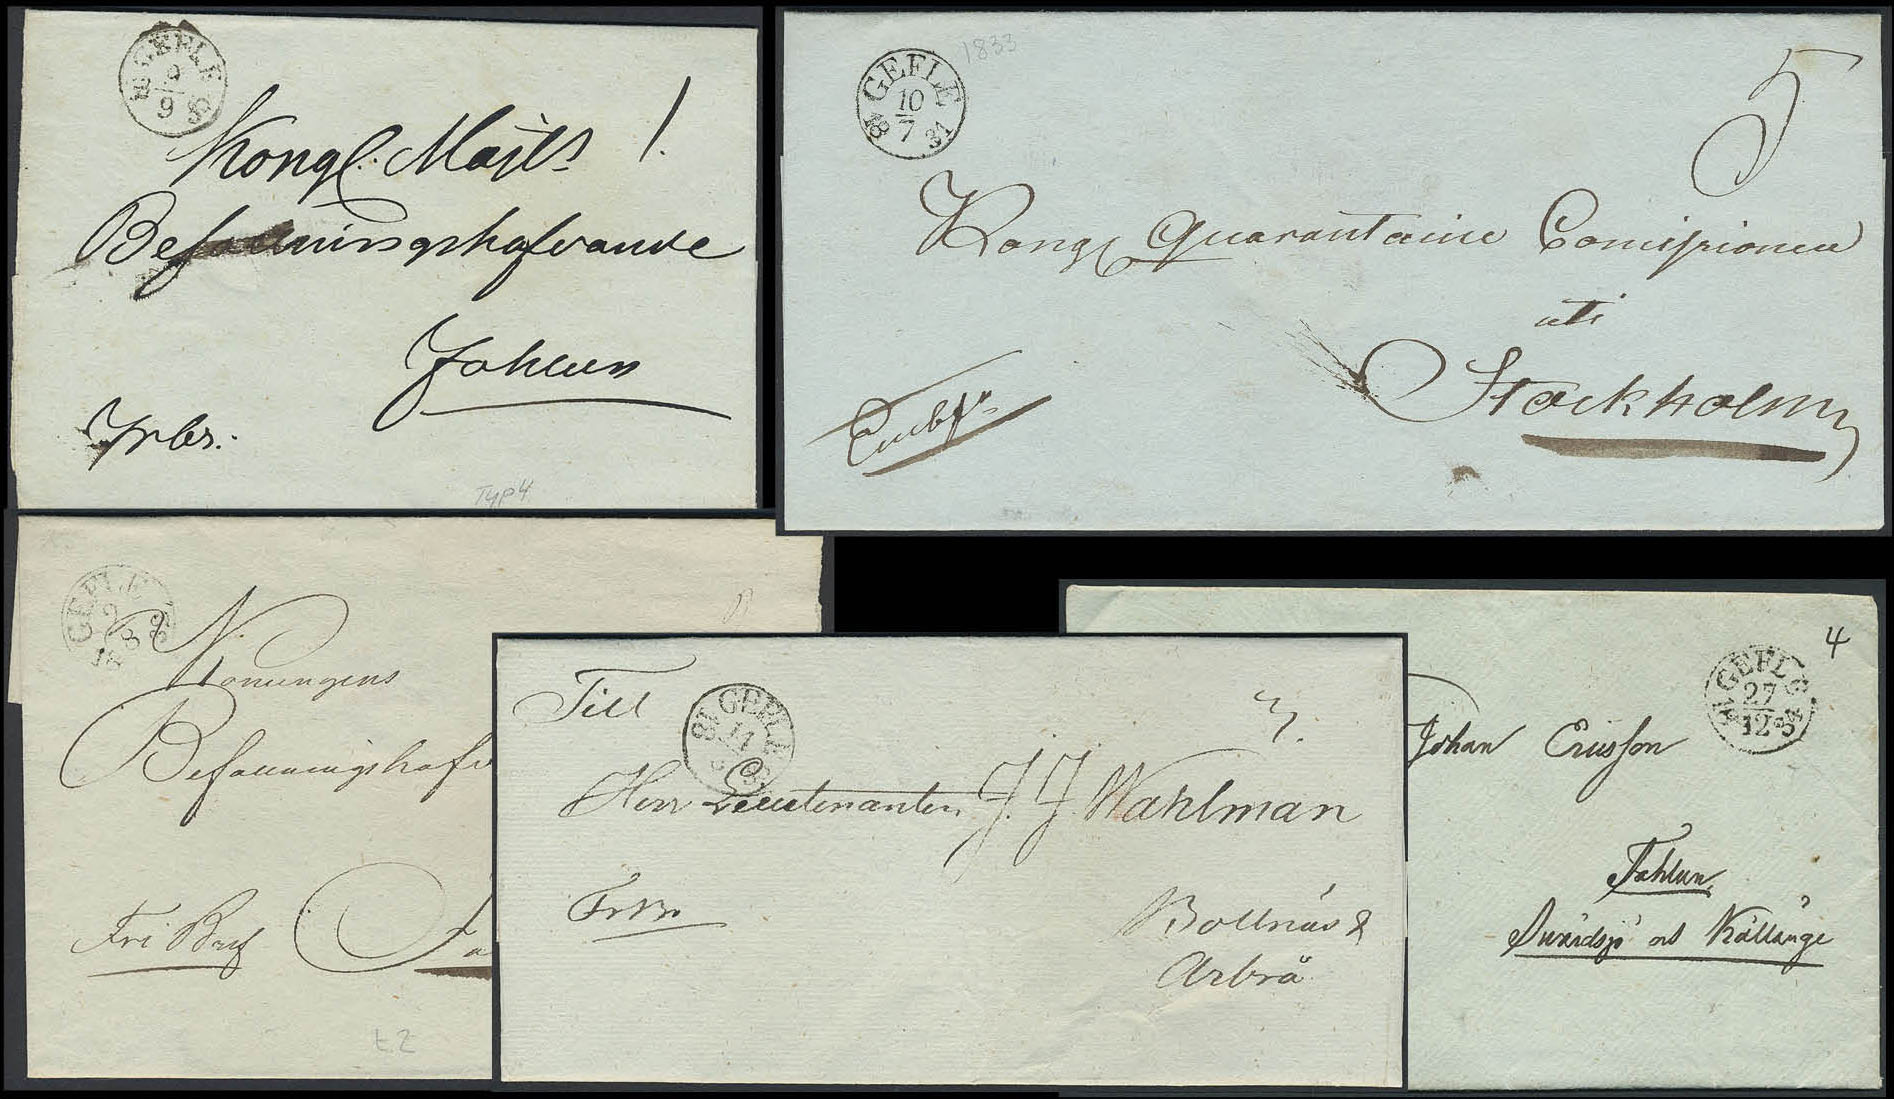 GEFLE
9
9
Kongl. Majts 1.
Befallningshafvande
Fahlun
Frbr.
Typ 4
GEFLE
10
7
18 31
1833
5
Kongl Quarantaine Comissionen
uti
Stockholm
GEFLE
2
8
18
Konungens
Befallningshafv
Fri Bref Fa
t 2
Till
GEFLE
3.
Herr Lieutenanten J. J. Wahlman
FrBr
Bollnäs &
Arbrå
GEFLE
27
12
4
Johan Ersson
Fahlun
Svärdsjö och